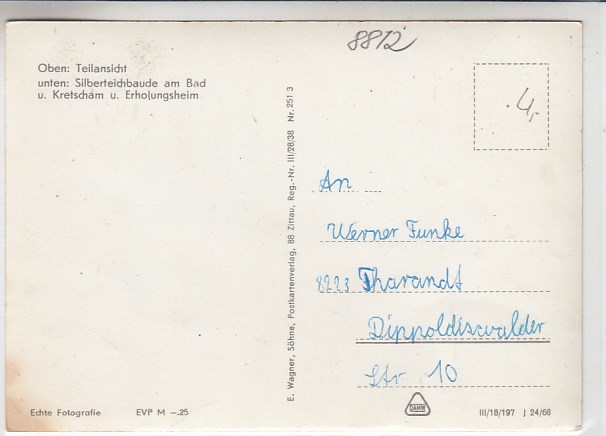 8812
Oben: Teilansicht
unten: Silberteichbaude am Bad
u. Kretscham u. Erholungsheim
4,-
E. Wagner, Söhne, Postkartenverlag, 88 Zittau, Reg.-Nr. III/28/38 Nr. 251 3
An
Werner Funke
8223 Tharandt
Dippoldiswalder
Str 10
Echte Fotografie EVP M –.25
DAMW
III/18/197 J 24/68